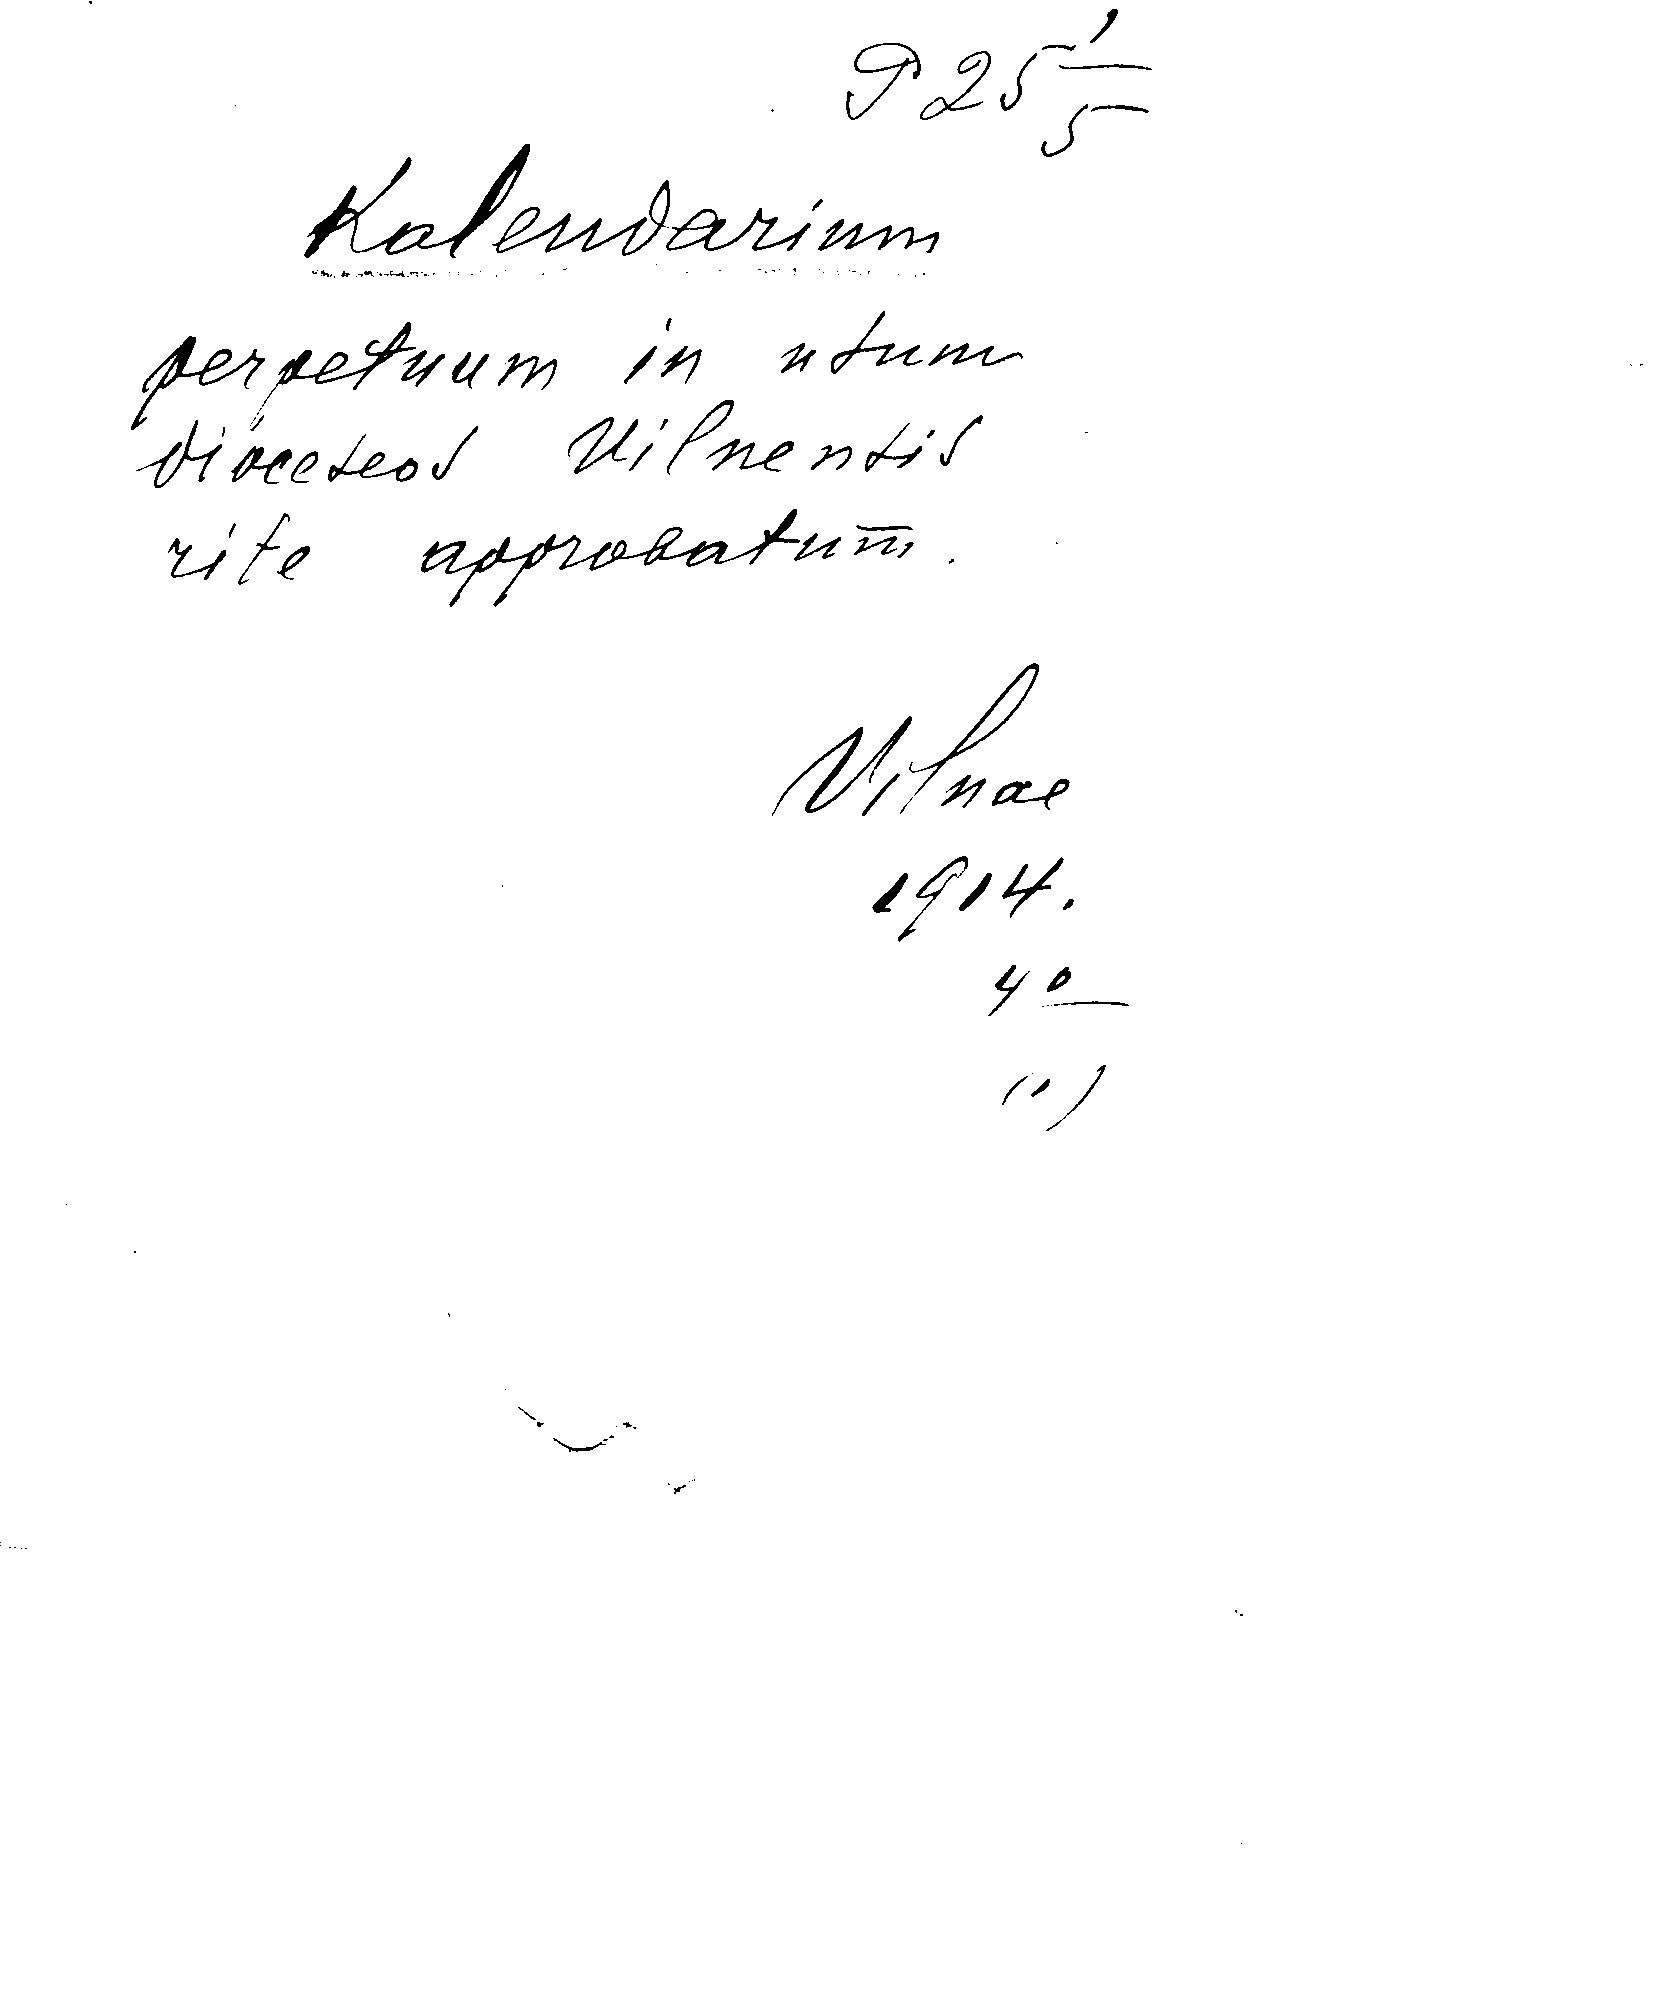 P 25 1/5
Kalendarium
perpetuum in usum
dioceseos Vilnensis
rite approbatum̄.
Vilnae
1914.
4°
(1)